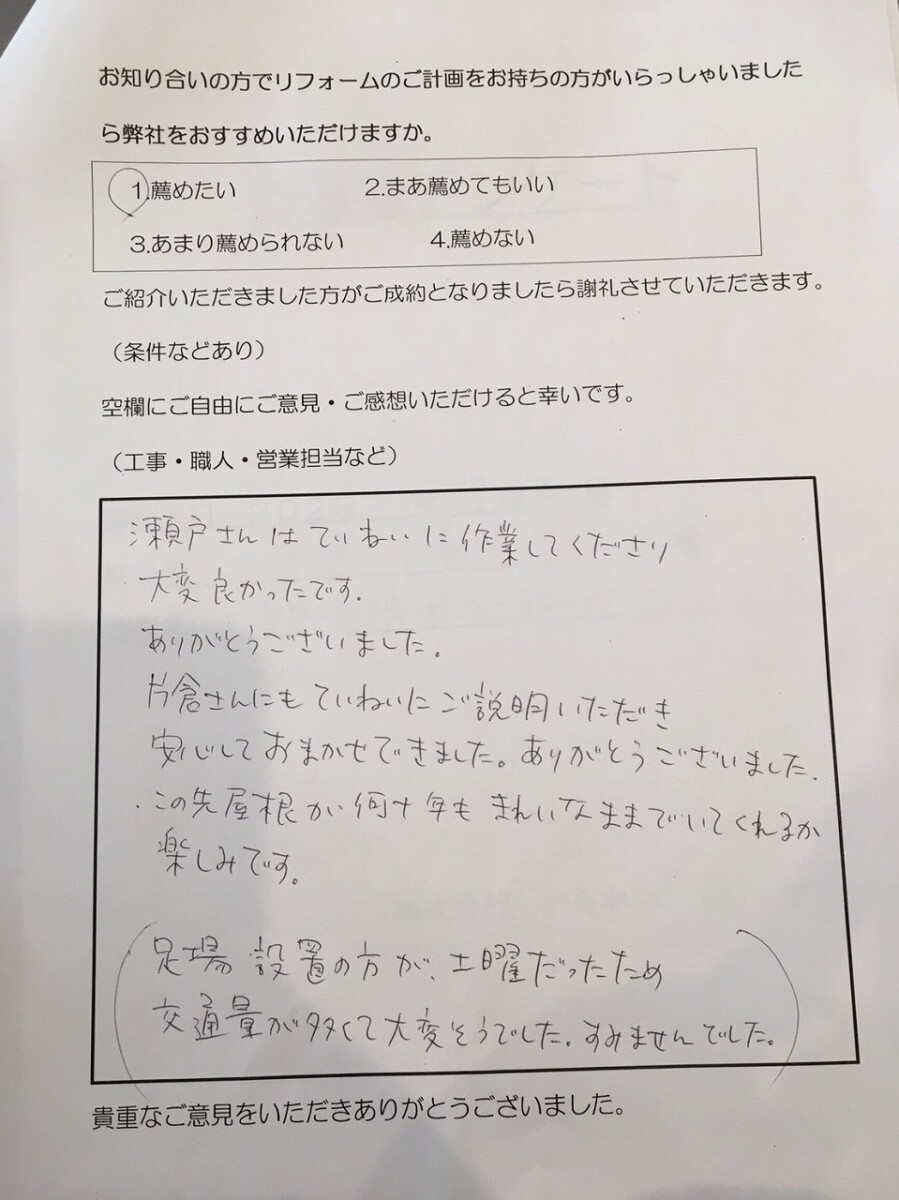 お知り合いの方でリフォームのご計画をお持ちの方がいらっしゃいました
ら弊社をおすすめいただけますか。
1.薦めたい 2.まあ薦めてもいい
3.あまり薦められない 4.薦めない
ご紹介いただきました方がご成約となりましたら謝礼させていただきます。
（条件などあり）
空欄にご自由にご意見・ご感想いただけると幸いです。
（工事・職人・営業担当など）
瀬戸さんはていねいに作業してくださり
大変良かったです.
ありがとうございました.
片倉さんにもていねいにご説明いただき
安心しておまかせできました。ありがとうございました.
・この先屋根が何十年もきれいなままでいてくれるか
楽しみです。
(足場設置の方が、土曜だったため
交通量が多くて大変そうでした。すみませんでした。)
貴重なご意見をいただきありがとうございました。